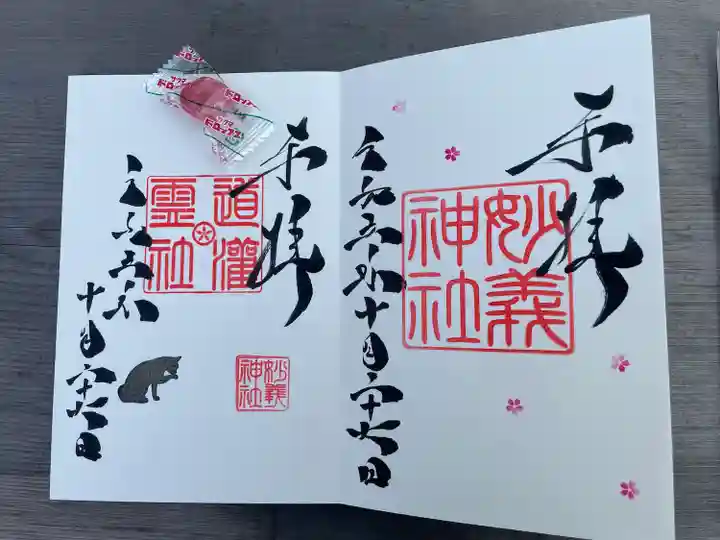 奉拝
妙義
神社
令和五年十月二十七日
奉拝
道灌
霊社
令和五年
十月二十七日
妙義
神社
サクマ
ドロップス
サクマ
ドロップス